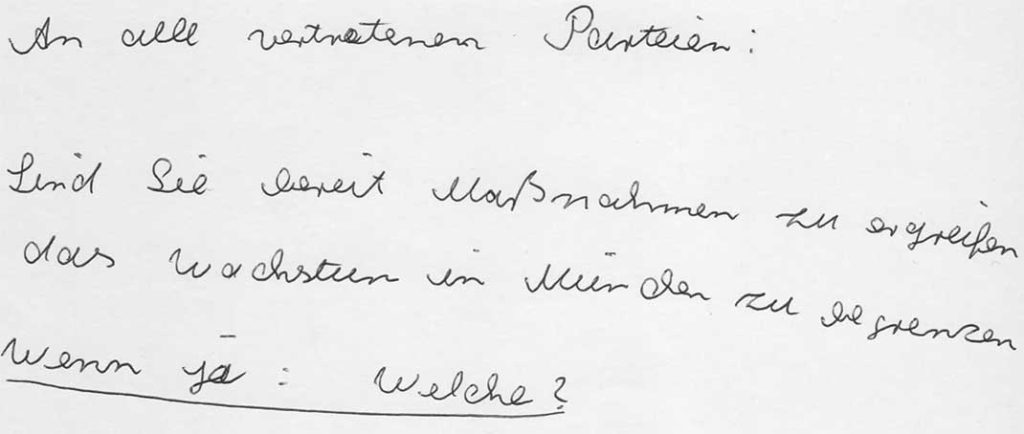 An alle vertretenen Parteien:
Sind Sie bereit Maßnahmen zu ergreifen
das Wachstum in München zu begrenzen
Wenn ja: Welche?